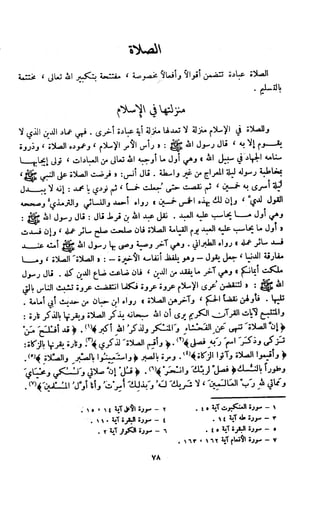 الصلاة
الصلاة عبادة تتضمن أقوالاً وأفعالاً مخصوصة ، مفتتحة بتكبير الله تعالى ، مختتمة
بالتسليم .
منزلتها في الإسلام
وللصلاة في الإسلام منزلة لا تعدلها منزلة أية عبادة أخرى . فهي عماد الدين الذي لا
يقوم إلا به ، قال رسول الله ﷺ : « رأس الأمر الإسلام ، وعموده الصلاة ، وذروة
سنامه الجهاد في سبيل الله » وهي أول ما أوجبه الله تعالى من العبادات ، تولى إيجابها
بمخاطبة رسوله ليلة المعراج من غير واسطة . قال أنس : « فرضت الصلاة على النبي ﷺ
ليلة أسري به خمسين ، ثم نقصت حتى جعلت خمساً ، ثم نودي يا محمد : إنه لا يبدل
القول لدي ، وإن لك بهذه الخمس خمسين » رواه أحمد والنسائي والترمذي وصححه
وهي أول ما يحاسب عليه العبد . نقل عبد الله بن قرط قال : قال رسول الله ﷺ :
« أول ما يحاسب عليه العبد يوم القيامة الصلاة فإن صلحت صلح سائر عمله ، وإن فسدت
فسد سائر عمله » رواه الطبراني . وهي آخر وصية وصى بها رسول الله ﷺ أمته عند
مفارقة الدنيا ، جعل يقول - وهو يلفظ أنفاسه الأخيرة - : « الصلاة الصلاة ، وما
ملكت أيمانكم » وهي آخر ما يفقد من الدين ، فإن ضاعت ضاع الدين كله . قال رسول
الله ﷺ : « لتنقضن عرى الإسلام عروة عروة فكلما انتقضت عروة تشبث الناس بالتي
تليها . فأولهن نقضاً الحكم ، وآخرهن الصلاة » رواه ابن حبان من حديث أبي أمامة .
والمتتبع لآيات القرآن الكريم يرى أن الله سبحانه يذكر الصلاة ويقرنها بالذكر تارة :
﴿ إن الصلاة تنهى عن الفحشاء والمنكر ولذكر الله أكبر ﴾(١) . ﴿ قد أفلح من
تزكى وذكر اسم ربه فصلى ﴾(٢) . ﴿ وأقم الصلاة لذكري ﴾(٣) . وتارة يقرنها بالزكاة :
﴿ وأقيموا الصلاة وآتوا الزكاة ﴾(٤) . ومرة بالصبر ﴿ واستعينوا بالصبر والصلاة ﴾(٥) .
وطوراً بالنسك ﴿ فصل لربك وانحر ﴾(٦) . ﴿ قل إن صلاتي ونسكي ومحياي
ومماتي لله رب العالمين ، لا شريك له وبذلك أمرت وأنا أول المسلمين ﴾(٧) .
١ - سورة العنكبوت آية ٤٥ . ٢ - سورة الأعلى آية ١٤ ، ١٥ .
٣ - سورة طه آية ١٤ . ٤ - سورة البقرة آية ١١٠ .
٥ - سورة البقرة آية ٤٥ . ٦ - سورة الكوثر آية ٢ .
٧ - سورة الأنعام آية ١٦٢ ، ١٦٣ .
٧٨